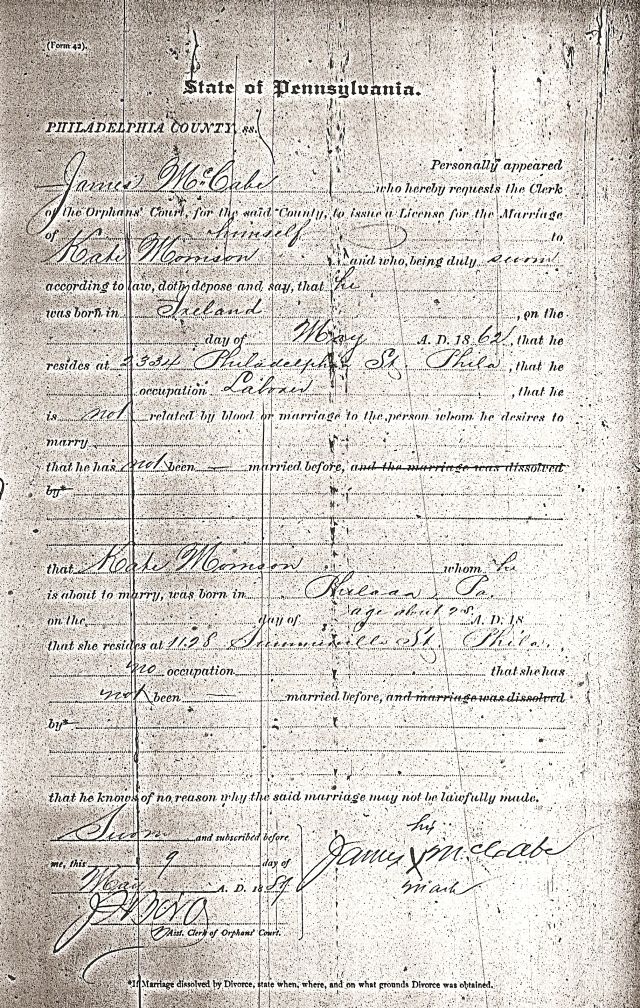 (Form 42).
State of Pennsylvania.
PHILADELPHIA COUNTY, ss.
Personally appeared
James McCabe who hereby requests the Clerk
of the Orphans' Court, for the said County, to issue a License for the Marriage
of himself to
Kate Morrison and who, being duly sworn
according to law, doth depose and say, that he
was born in Ireland, on the
day of May A. D. 1862, that he
resides at 2334 Philadelphia St. Phila, that he
occupation Laborer, that he
is not related by blood or marriage to the person whom he desires to
marry
that he has not been — married before, and the marriage was dissolved
by*
that Kate Morrison whom he
is about to marry, was born in Philada Pa.
on the day of age about 28. A. D. 18
that she resides at 1128 St. Phila,
no occupation that she has
not been — married before, and marriage was dissolved
by*
that he knows of no reason why the said marriage may not be lawfully made.
Sworn and subscribed before
me, this 9 day of
May A. D. 1889.
Asst. Clerk of Orphans' Court.
his
James X McCabe
mark
*If Marriage dissolved by Divorce, state when, where, and on what grounds Divorce was obtained.